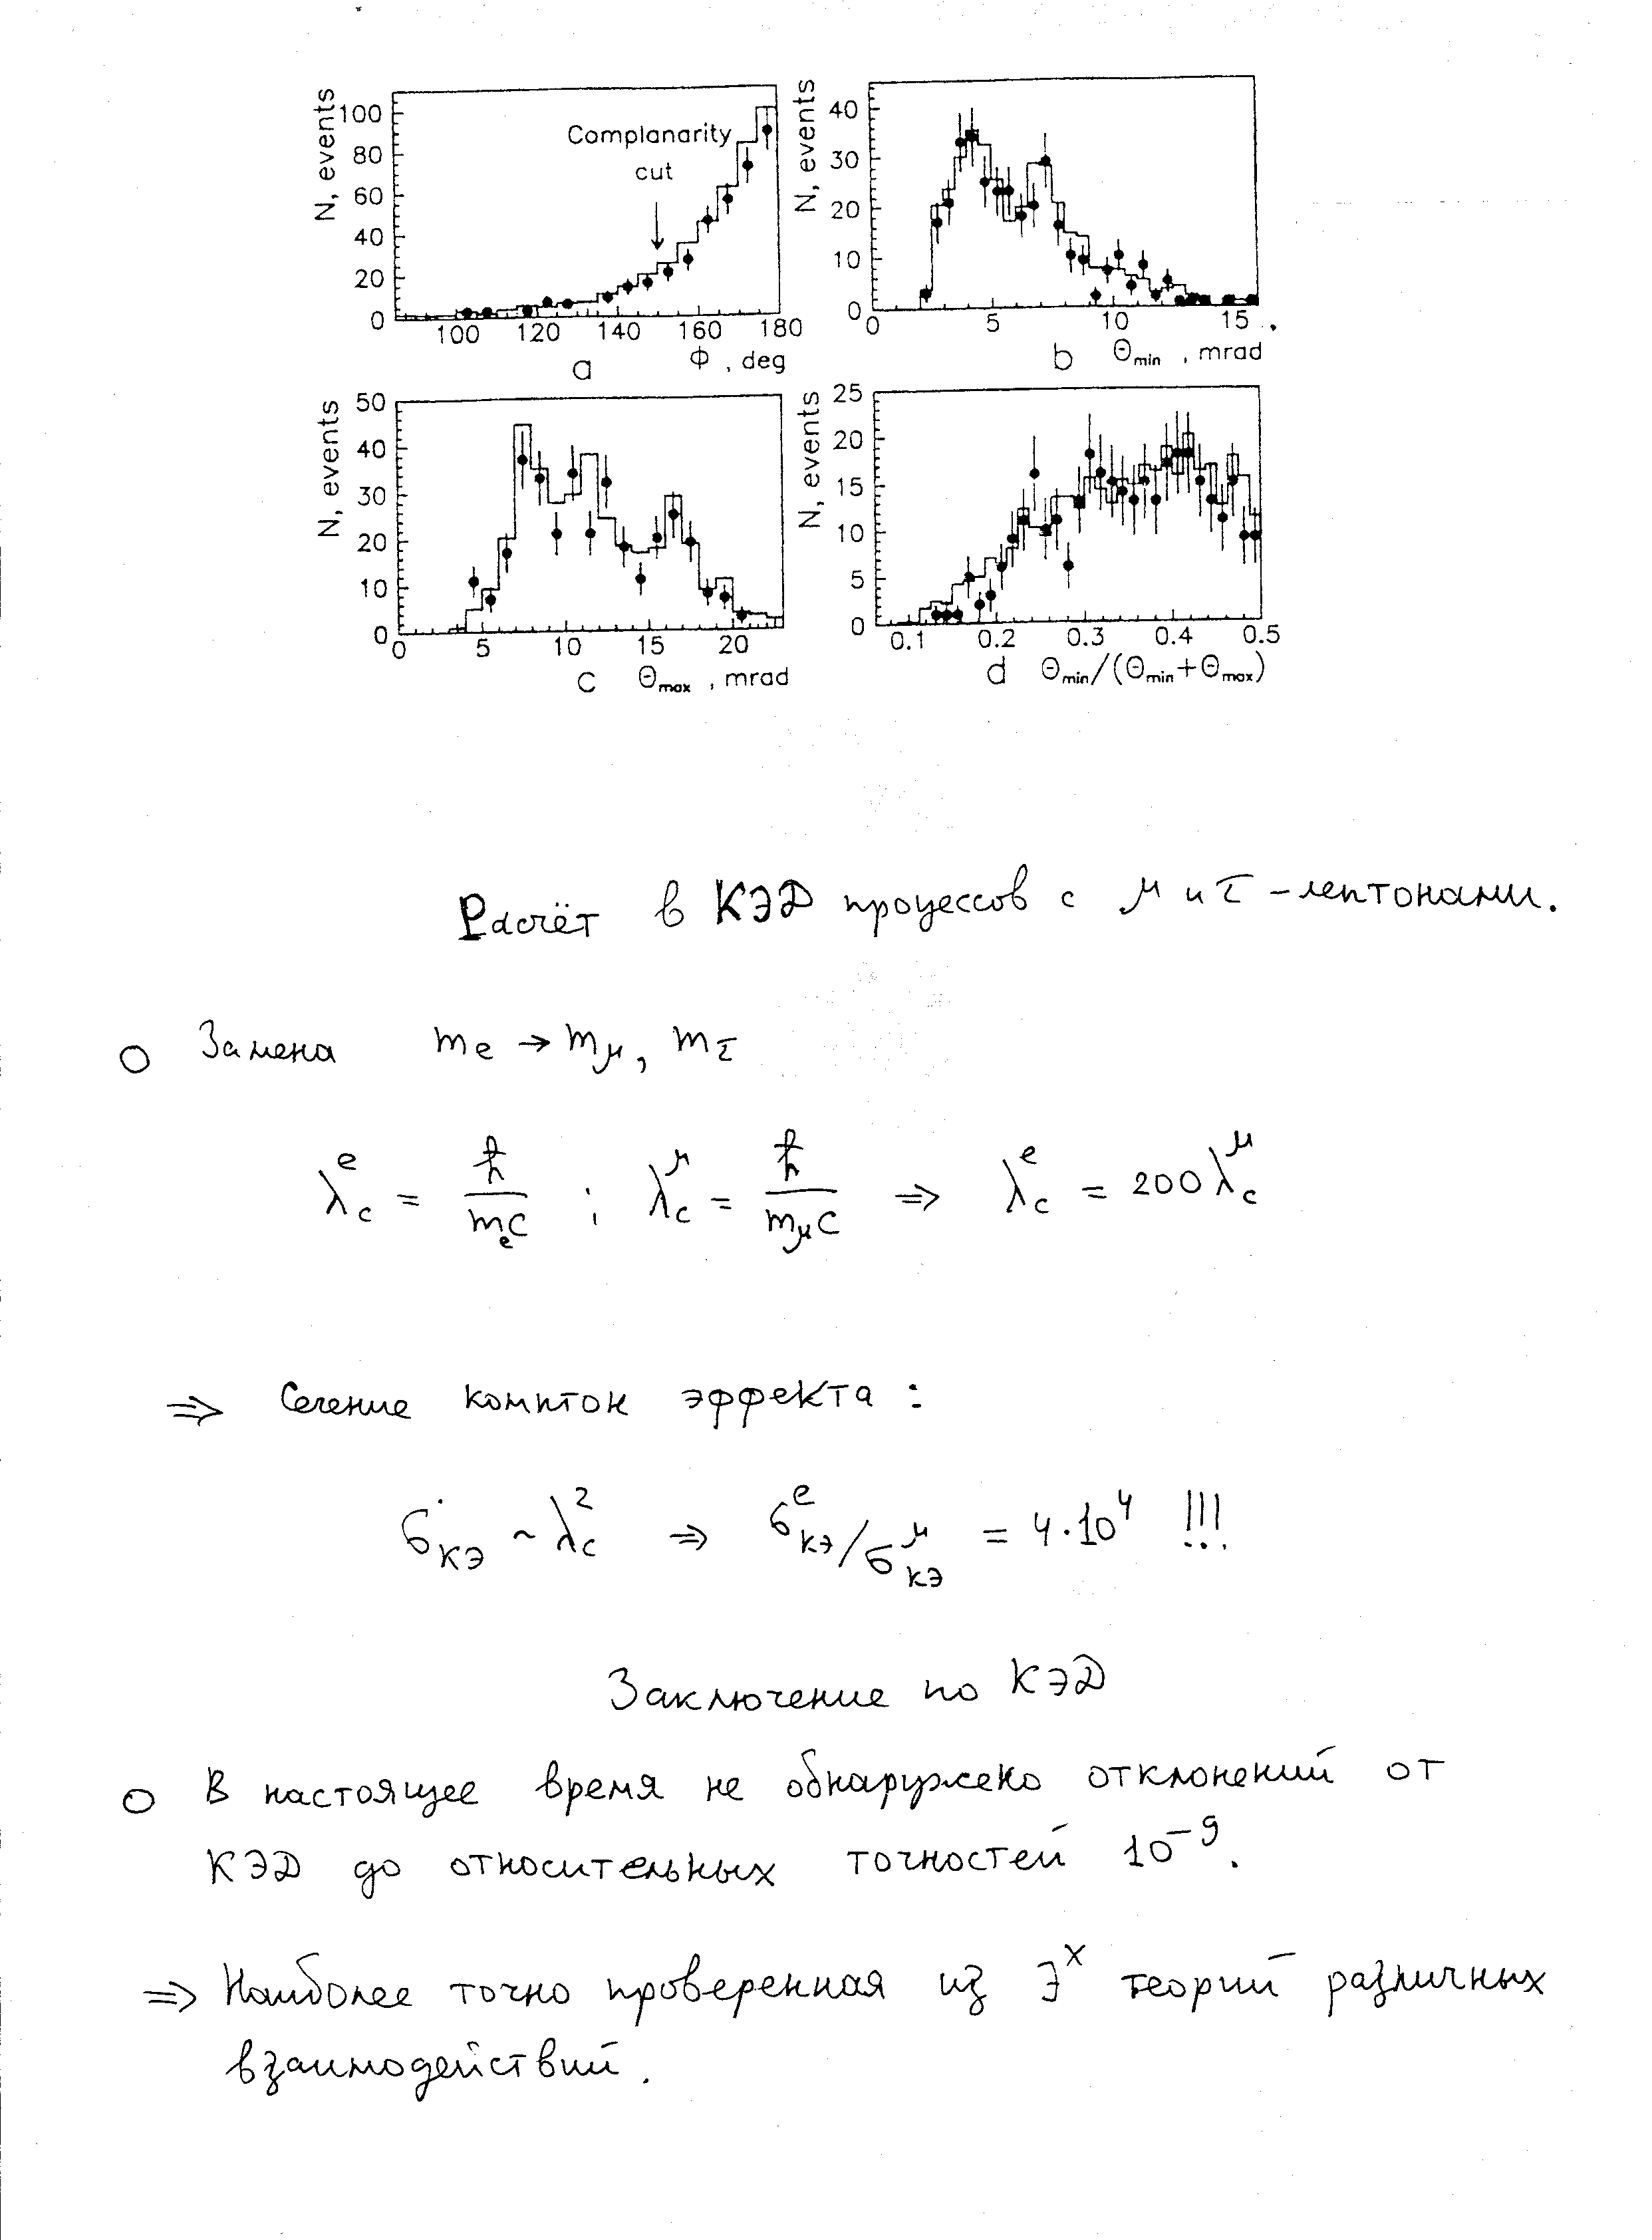 N, events
100
80
60
40
20
0
Complanarity
cut
100 120 140 160 180
a Φ, deg
N, events
40
30
20
10
0
0 5 10 15
b Θmin, mrad
N, events
50
40
30
20
10
0
0 5 10 15 20
c Θmax, mrad
N, events
25
20
15
10
5
0
0.1 0.2 0.3 0.4 0.5
d Θmin/(Θmin+Θmax)
Расчёт в КЭД процессов с μ и τ-лептонами.
○ Замена mₑ → m_μ, m_τ
λ_c^e = ħ/(mₑc) ; λ_c^μ = ħ/(m_μ c) ⇒ λ_c^e = 200 λ_c^μ
⇒ Сечение комптон эффекта :
σ_КЭ ~ λ_c² ⇒ σ_КЭ^e/σ_КЭ^μ = 4·10⁴ !!!
Заключение по КЭД
○ В настоящее время не обнаружено отклонений от
КЭД до относительных точностей 10⁻⁹.
⇒ Наиболее точно проверенная из 3ˣ теорий различных
взаимодействий.